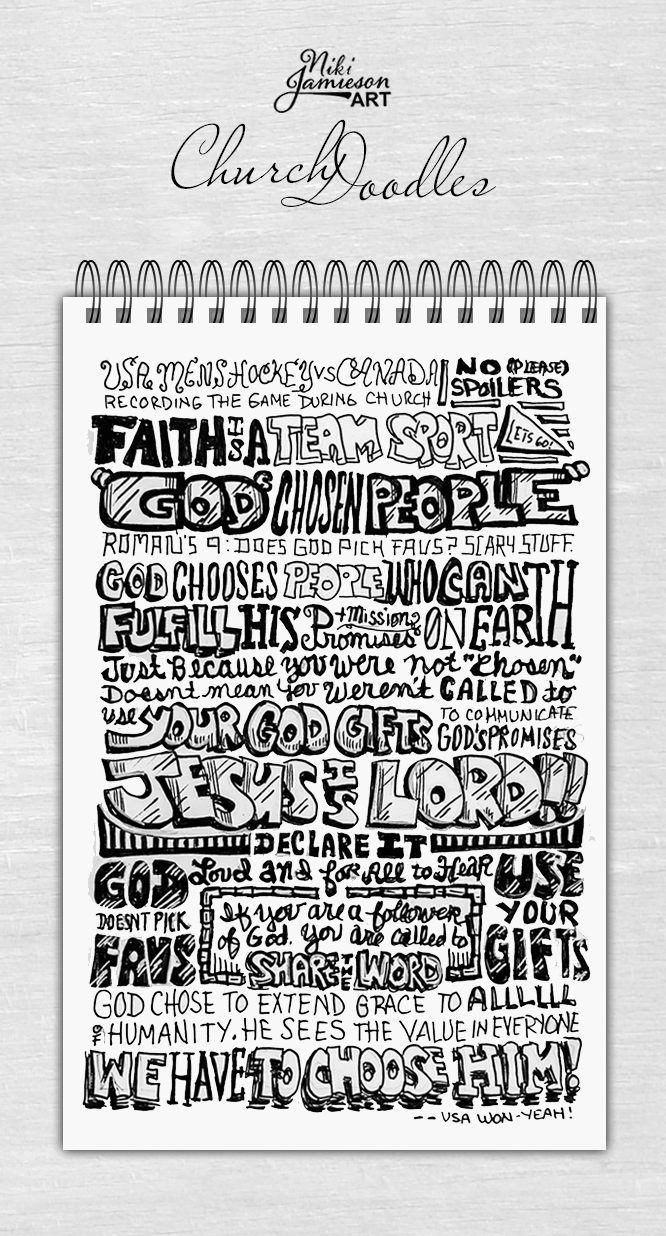 Niki
Jamieson
ART
Church Doodles
USA MENS HOCKEY VS CANADA NO (PLEASE)
RECORDING THE GAME DURING CHURCH SPOILERS
FAITH IS A TEAM SPORT LETS GO!
"GOD'S CHOSEN PEOPLE"
ROMAN'S 9: DOES GOD PICK FAVS? SCARY STUFF.
GOD CHOOSES PEOPLE WHO CAN
FULFILL HIS Promises + Missions ON EARTH
Just Because you were not "Chosen"
Doesnt mean You Weren't CALLED to
use YOUR GOD GIFTS TO COMMUNICATE
GOD'S PROMISES
JESUS IS LORD!!
DECLARE IT
Loud and for All to Hear
GOD
DOESNT PICK
FAVS
If you are a follower
of God. you are called to
SHARE THE WORD
USE
YOUR
GIFTS
GOD CHOSE TO EXTEND GRACE TO ALLLLLL
OF HUMANITY. HE SEES THE VALUE IN EVERYONE
WE HAVE TO CHOOSE HIM!
-- USA WON-YEAH!